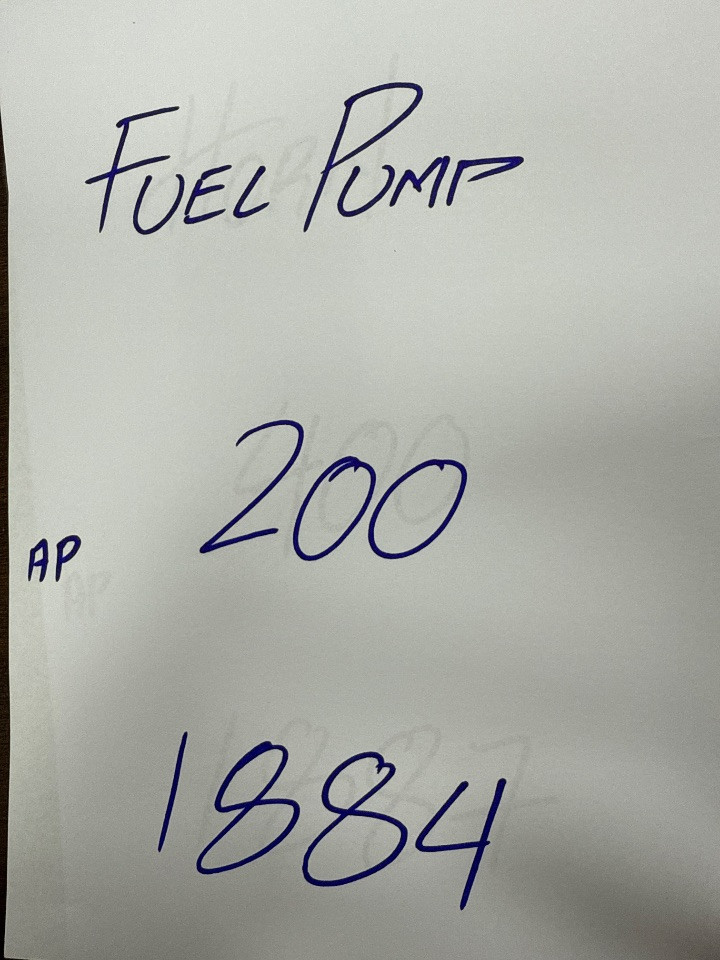 FUEL PUMP
200
AP
1884